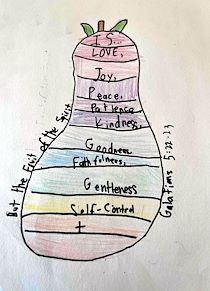 IS...
LOVE,
Joy,
Peace,
Patience
Kindness,
Goodness
Faithfulness,
Gentleness
Self-Control
But the Fruit of the Spirit
Galatians 5:22-23